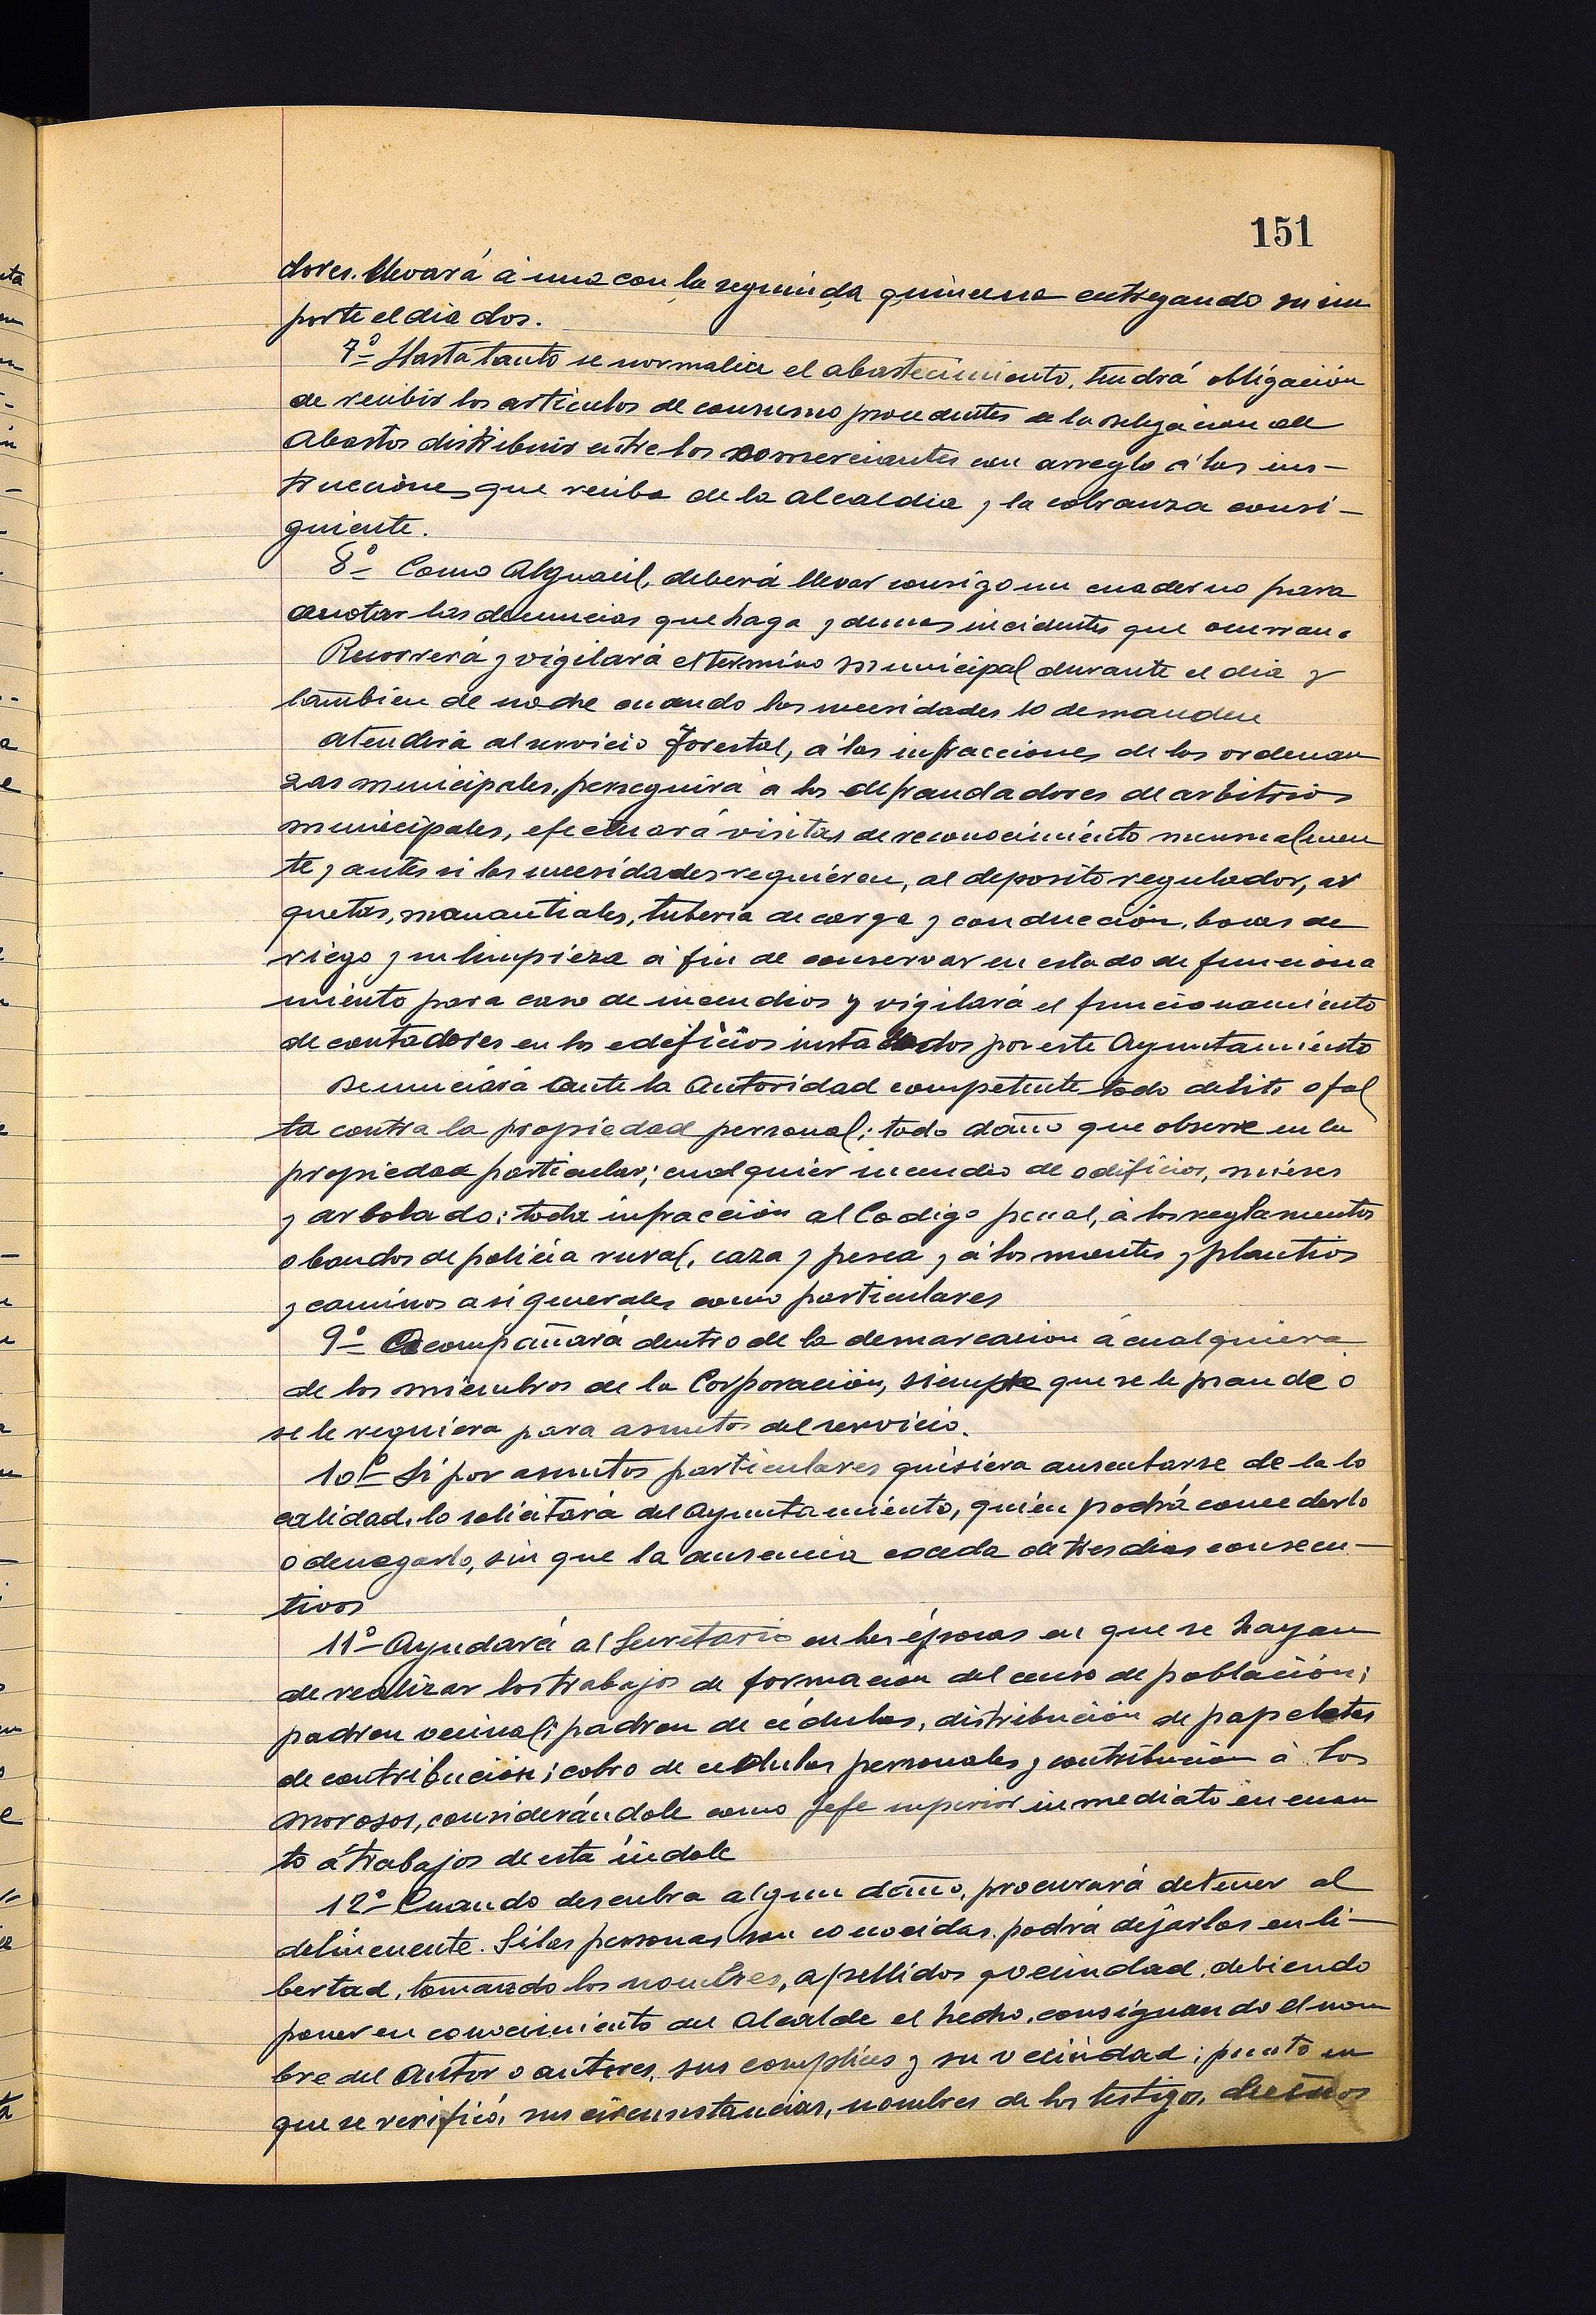 151
dores. llevará á una con la segunda quincena entregando su im
porte el dia dos.
7º- Hasta tanto se normalice el abastecimiento, tendrá obligación
de recibir los articulos de consumo procedentes de la Delegacion de
Abastos distribuir entre los comerciantes con arreglo á las ins-
trucciones que reciba de la alcaldia y la cobranza consi-
guiente.
8º- Como Alguacil, deberá llevar consigo un cuaderno para
anotar las denuncias que haga y demas incidentes que ocurran.
Recorrerá y vigilará el termino municipal durante el dia y
tambien de noche cuando las necesidades lo demanden
atenderá al servicio forestal, á las infracciones de las ordenan
zas municipales, perseguirá a los defraudadores de arbitrios
municipales, efectuará visitas de reconocimiento mensualmen
te y antes si las necesidades requieren, al deposito regulador, ar
quetas, manantiales, tuberia de carga y conducción, bocas de
riego y su limpieza á fin de conservar en estado de funciona
miento para caso de incendios y vigilará el funcionamiento
de contadores en los edificios instalados por este Ayuntamiento
Denunciará ante la Autoridad competente todo delito o fal
ta contra la propiedad personal; todo daño que observe en la
propiedad particular; cualquier incendio de edificios, mieses
y arbolado; toda infracción al Codigo penal, á los reglamentos
o bandos de policia rural, caza y pesca y á los montes y plantios
y caminos asi generales como particulares
9º- Acompañará dentro de la demarcacion á cualquiera
de los miembros de la Corporación, siempre que se le mande o
se le requiera para asuntos del servicio.
10º- Si por asuntos particulares quisiera ausentarse de la lo
calidad, lo solicitará del Ayuntamiento, quien podrá concederlo
o denegarlo, sin que la ausencia exceda de tres dias consecu-
tivos
11º- Ayudará al Secretario en las épocas en que se hayan
de realizar los trabajos de formacion del censo de población;
padron vecinal; padron de cédulas, distribución de papeletas
de contribución; cobro de cedulas personales y contribucion á los
morosos, considerándole como Jefe superior inmediato en cuan
to á trabajos de esta índole
12º- Cuando descubra algun daño, procurará detener al
delincuente. Si las personas son conocidas, podrá dejarlas en li-
bertad, tomando los nombres, apellidos y vecindad, debiendo
poner en conocimiento del Alcalde el hecho, consignando el nom
bre del Autor o autores, sus complices y su vecindad; punto en
que se verificó, sus circunstancias, nombres de los testigos, dueños